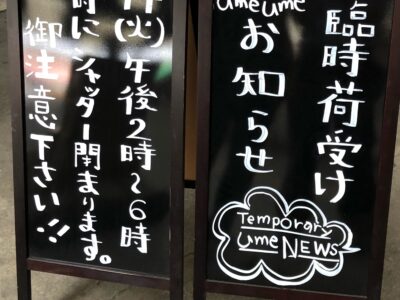 臨時荷受け
umeume
お知らせ
Temporary
Ume NEWS
(火)午後2時〜6時
時にシャッター閉まります。
御注意下さい!!